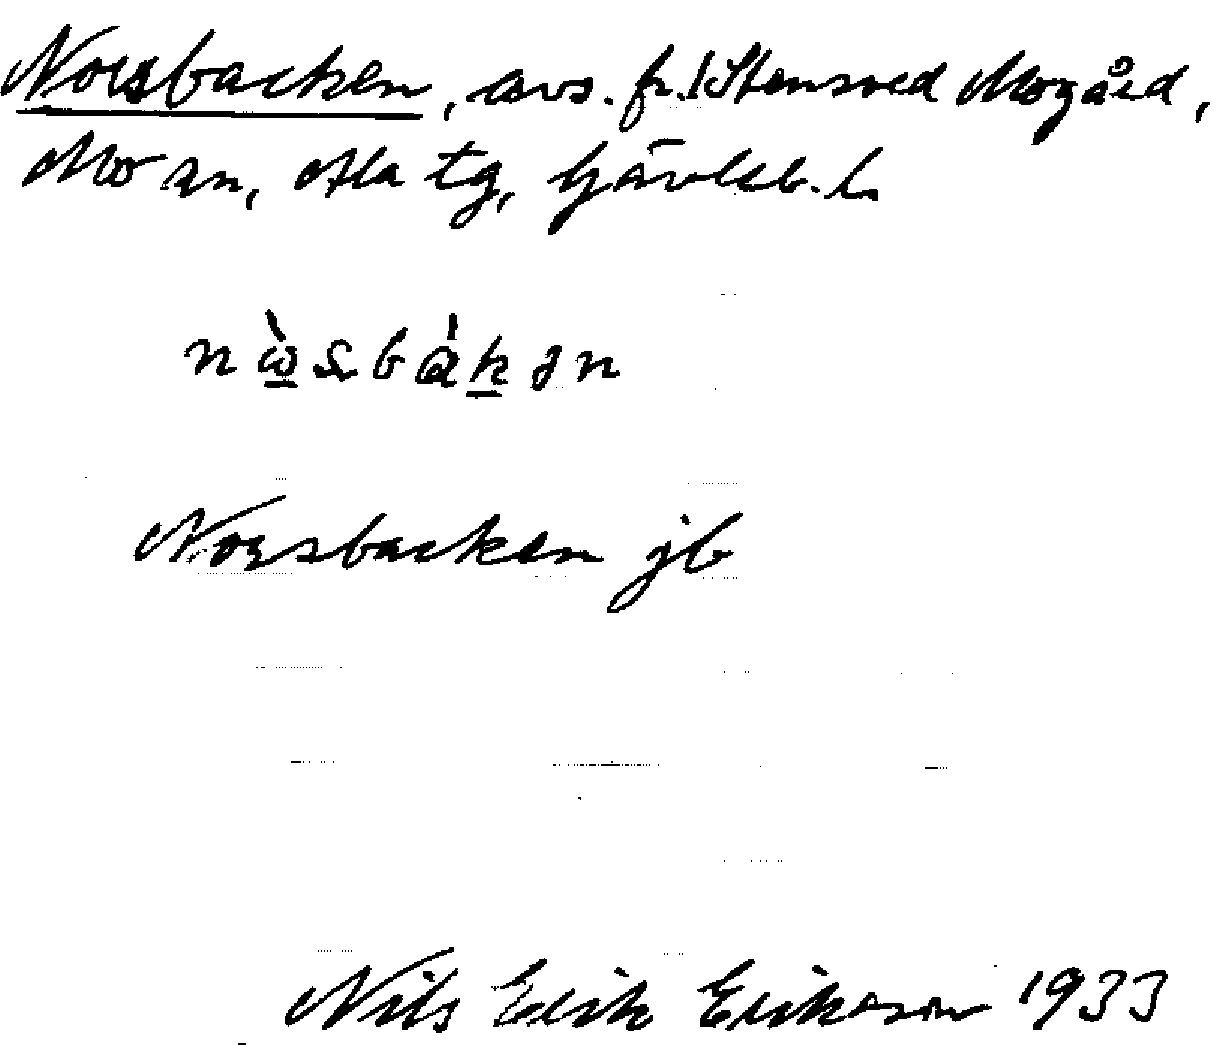 Norsbacken, avs. fr. 1 Stensved Mogård,
Mo sn, Ala tg, Gävleb. l.
nɷ̀sbákən
Norsbacken jb
Nils Erik Erikson 1933